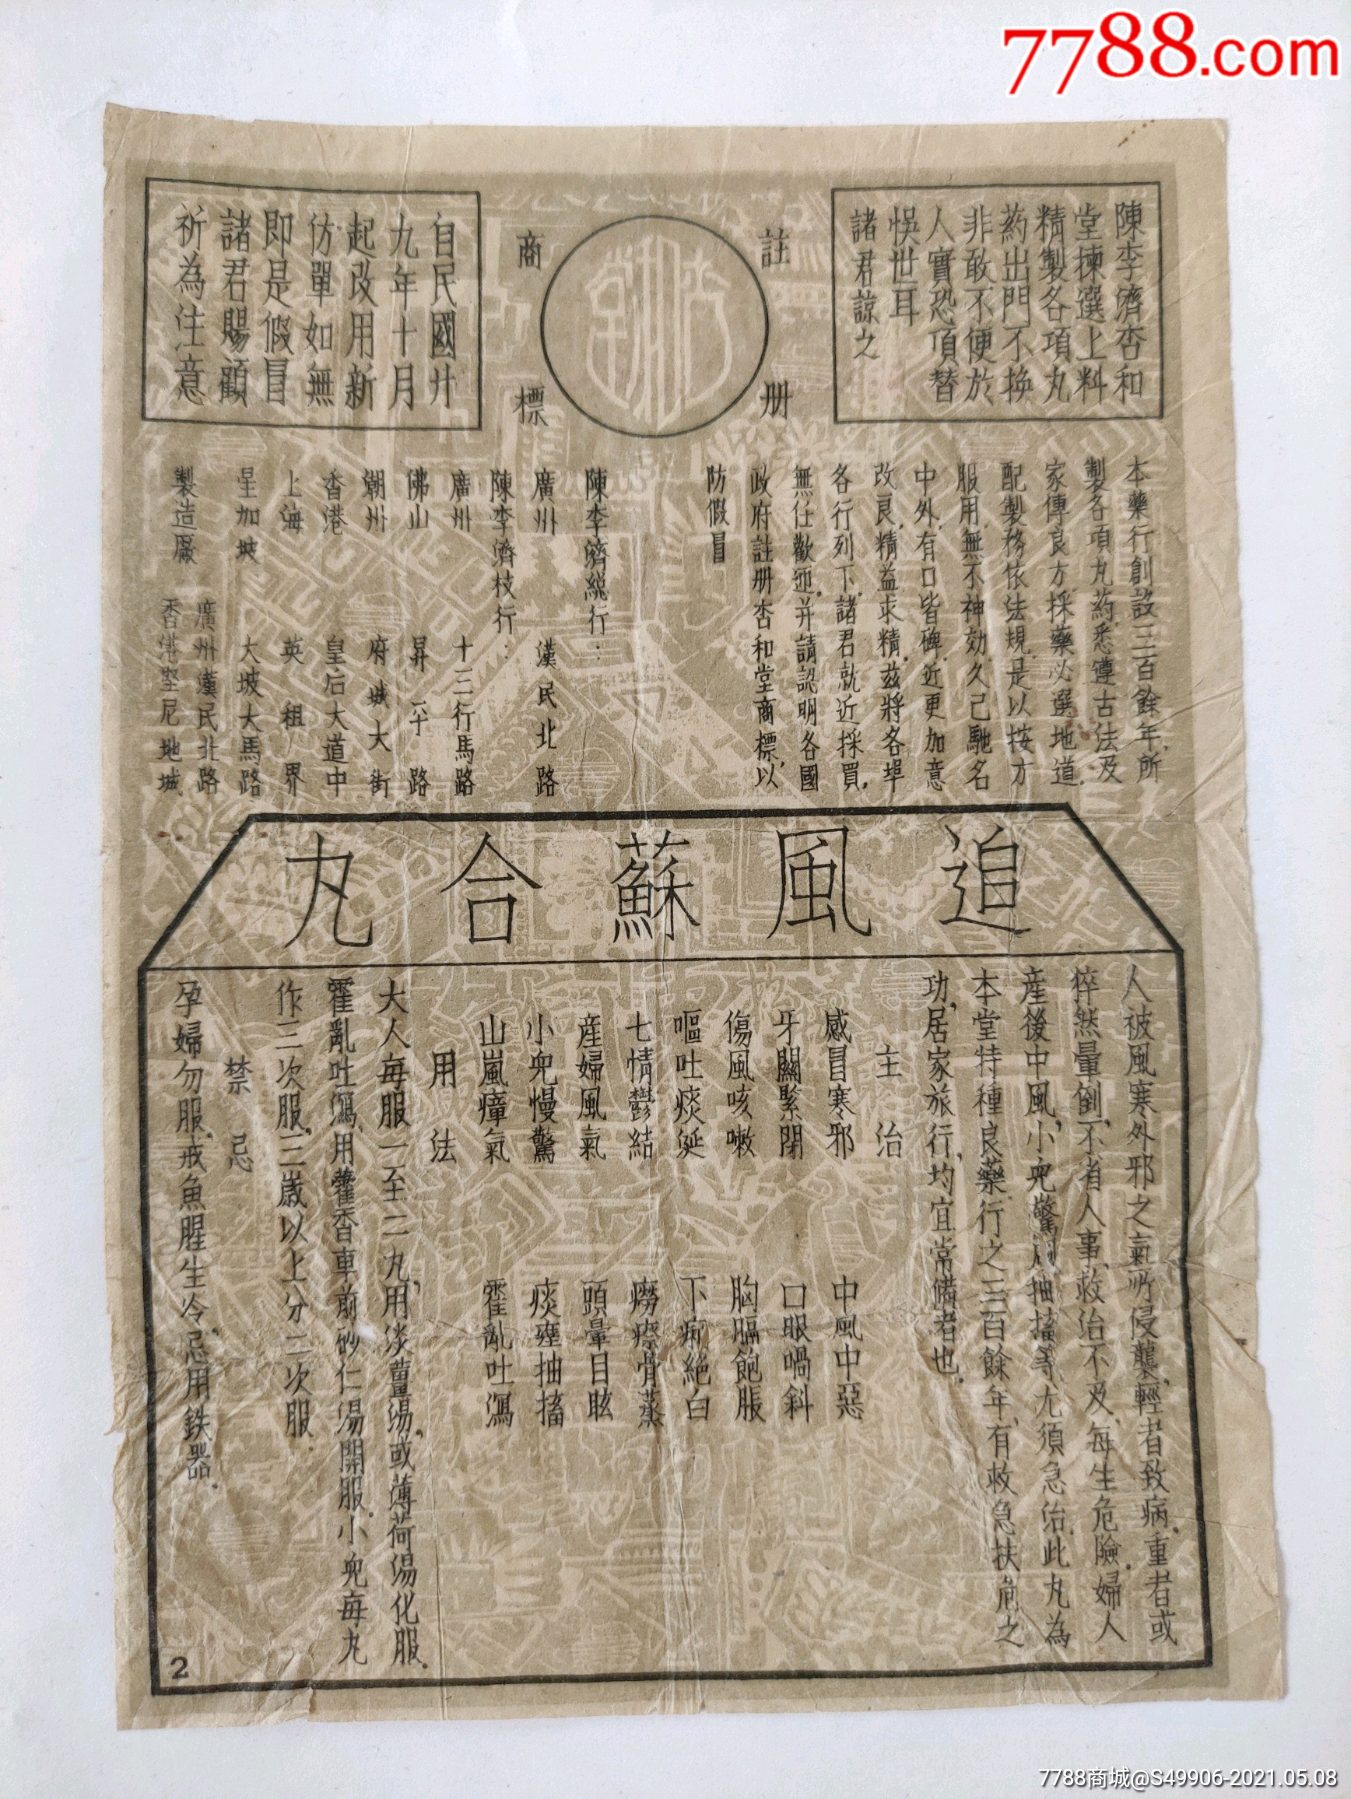 7788.com
陳李濟杏和
堂揀選上料
精製各項丸
葯出門不換
非敢不便於
人實恐頂替
悞世耳
諸君諒之
註册
商標
杏和堂
自民國廿
九年十月
起改用新
仿單如無
即是假冒
諸君賜顧
祈為注意
本藥行創設三百餘年,所
製各項丸葯悉遵古法及
家傳良方採藥必選地道,
配製務依法規,是以按方
服用,無不神効,久已馳名
中外,有口皆碑,近更加意
改良,精益求精,茲將各埠
各行列下,諸君就近採買,
無任歡迎,并請認明各國
政府註册杏和堂商標,以
防假冒
陳李濟総行:
廣州 漢民北路
陳李濟枝行:
廣州 十三行馬路
佛山 昇平路
潮州 府城大街
香港 皇后大道中
上海 英租界
星加坡 大坡大馬路
製造廠 廣州漢民北路
香港堅尼地城
追風蘇合丸
人被風寒外邪之氣所侵襲,輕者致病,重者或
猝然暈倒,不省人事,救治不及,每生危險,婦人
産後中風,小兒驚風抽搐等尤須急治,此丸為
本堂特種良藥,行之三百餘年,有救急扶危之
功,居家旅行,均宜常備者也.
主治
感冒寒邪 中風中惡
牙關緊閉 口眼喎斜
傷風咳嗽 胸膈飽脹
嘔吐痰涎 下痢絶白
七情鬱結 癆瘵骨蒸
産婦風氣 頭暈目眩
小兒慢驚 痰壅抽搐
山嵐瘴氣 霍亂吐瀉
用法
大人每服一至二丸,用淡薑湯,或薄荷湯化服.
霍亂吐瀉,用藿香車前砂仁湯開服,小兒每丸
作三次服,三歲以上分二次服.
禁忌
孕婦勿服,戒魚腥生冷,忌用鉄器.
2
7788商城@S49906-2021.05.08